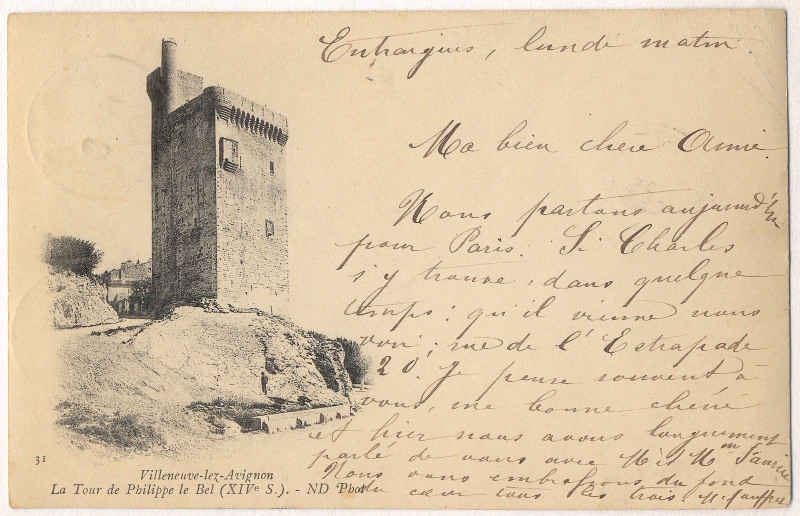 Entraigues, lundi matin.
Ma bien chère Amie.
Nous partons aujourd'hu
pour Paris. Si Charles
s'y trouve, dans quelque
temps; qu'il vienne nous
voir; rue de l'Estrapade
20. Je pense souvent à
vous, ma bonne chérie
et hier nous avons longuement
parlé de vous avec Mr et Mme
Nous vous embrassons du fond
du cœur tous les trois.
31
Villeneuve-lez-Avignon
La Tour de Philippe le Bel (XIVe S.). - ND Phot